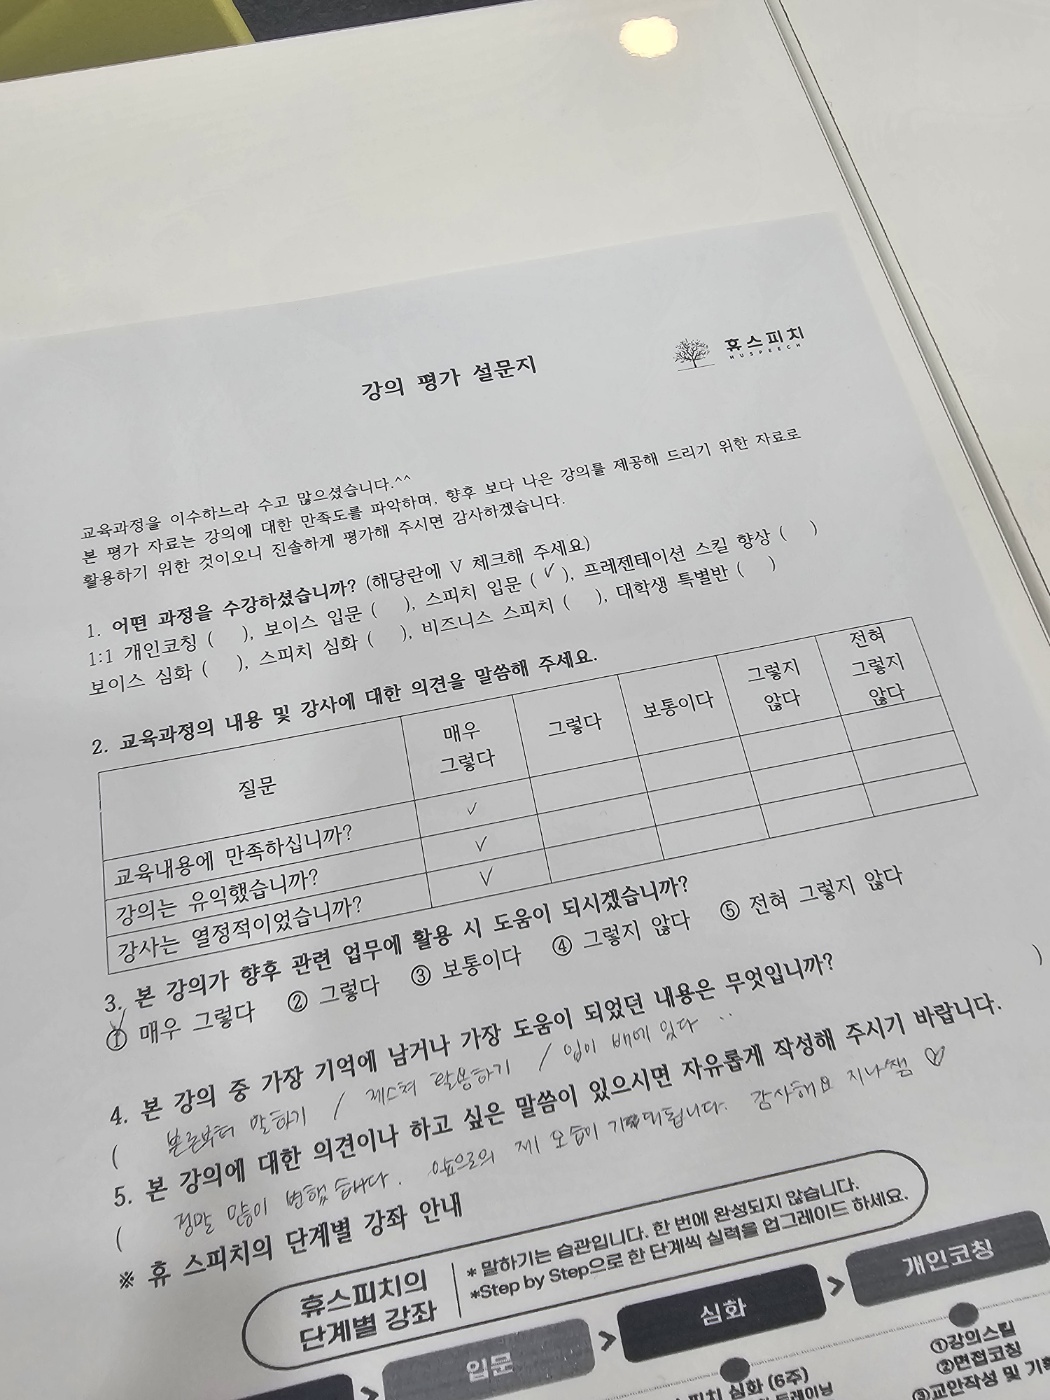 강의 평가 설문지
휴스피치
HUSPEECH
교육과정을 이수하느라 수고 많으셨습니다.^^
본 평가 자료는 강의에 대한 만족도를 파악하며, 향후 보다 나은 강의를 제공해 드리기 위한 자료로
활용하기 위한 것이오니 진솔하게 평가해 주시면 감사하겠습니다.
1. 어떤 과정을 수강하셨습니까? (해당란에 V 체크해 주세요)
1:1 개인코칭 ( ), 보이스 입문 ( ), 스피치 입문 ( ✓ ), 프레젠테이션 스킬 향상 ( )
보이스 심화 ( ), 스피치 심화 ( ), 비즈니스 스피치 ( ), 대학생 특별반 ( )
2. 교육과정의 내용 및 강사에 대한 의견을 말씀해 주세요.
질문 매우 그렇다 그렇다 보통이다 그렇지 않다 전혀 그렇지 않다
교육내용에 만족하십니까? ✓
강의는 유익했습니까? ✓
강사는 열정적이었습니까? ✓
3. 본 강의가 향후 관련 업무에 활용 시 도움이 되시겠습니까?
① 매우 그렇다 ② 그렇다 ③ 보통이다 ④ 그렇지 않다 ⑤ 전혀 그렇지 않다
4. 본 강의 중 가장 기억에 남거나 가장 도움이 되었던 내용은 무엇입니까?
( 본론부터 말하기 / 제스쳐 활용하기 / 입이 배에 있다 .. )
5. 본 강의에 대한 의견이나 하고 싶은 말씀이 있으시면 자유롭게 작성해 주시기 바랍니다.
( 정말 많이 변했습니다. 앞으로의 제 모습이 기대됩니다. 감사해요 지나쌤 ♡
※ 휴 스피치의 단계별 강좌 안내
휴스피치의
단계별 강좌
* 말하기는 습관입니다. 한 번에 완성되지 않습니다.
*Step by Step으로 한 단계씩 실력을 업그레이드 하세요.
입문 > 심화 > 개인코칭
스피치 심화 (6주)
①강의스킬
②면접코칭
③교안작성 및